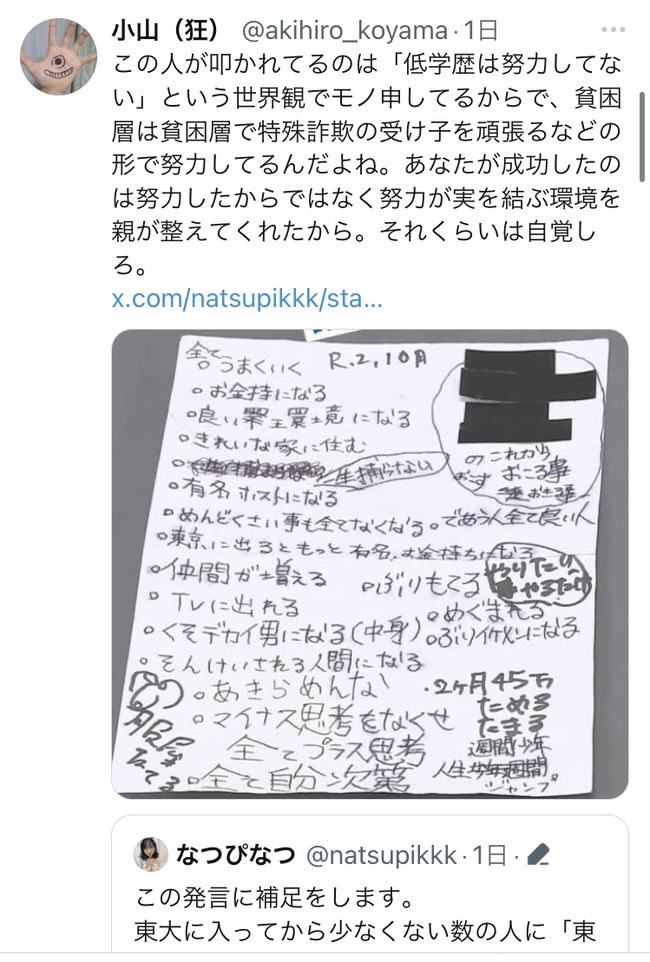 小山（狂） @akihiro_koyama · 1日
この人が叩かれてるのは「低学歴は努力してな
い」という世界観でモノ申してるからで、貧困
層は貧困層で特殊詐欺の受け子を頑張るなどの
形で努力してるんだよね。あなたが成功したの
は努力したからではなく努力が実を結ぶ環境を
親が整えてくれたから。それくらいは自覚し
ろ。
x.com/natsupikkk/sta...
全てうまくいく R.2,10月
お金持になる
良い環境になる
きれいな家に住む
一生捕らない
のこれから
おこる事
有名ホストになる
めんどくさい事も全てなくなる
であう人全て良い人
東京に出るともっと有名、お金持ちになる
仲間が増える
ぶりもてる
やりたい
やるだけ
TVに出れる
めぐまれる
くそデカイ男になる(中身)
ぶりイケメンになる
そんけいされる人間になる
あきらめんな
・2ヶ月45万
ためる
たまる
マイナス思考をなくせ
全てプラス思考
週間少年
全て自分次第
人生
週間
ジャンプ。
なつぴなつ @natsupikkk · 1日 ·
この発言に補足をします。
東大に入ってから少なくない数の人に「東